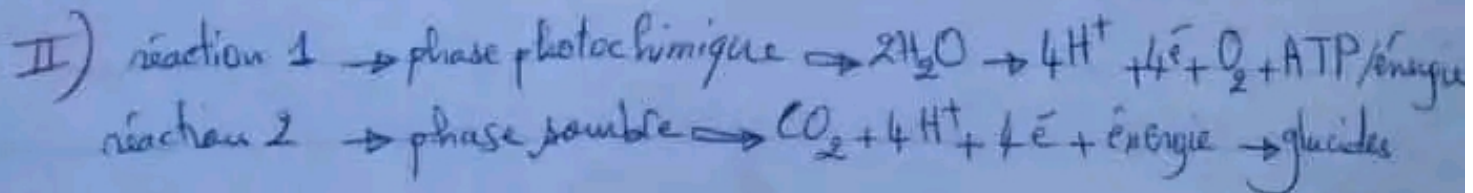 II) réaction 1 → phase photochimique ⇒ 2H₂O → 4H⁺ + 4é + O₂ + ATP/énergie
réaction 2 → phase sombre ⇒ CO₂ + 4H⁺ + 4é + énergie → glucides